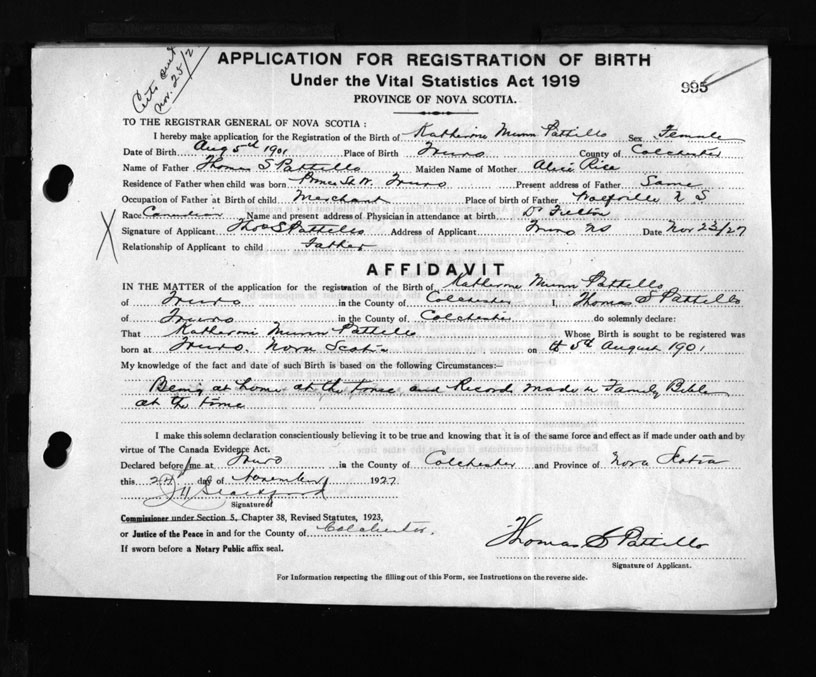 Certs sent
Nov. 25/27
APPLICATION FOR REGISTRATION OF BIRTH
Under the Vital Statistics Act 1919
PROVINCE OF NOVA SCOTIA.
995
TO THE REGISTRAR GENERAL OF NOVA SCOTIA :
I hereby make application for the Registration of the Birth of Katherine Munn Pattillo Sex Female
Date of Birth Aug 5th 1901 Place of Birth Truro County of Colchester
Name of Father Thomas S Pattillo Maiden Name of Mother Alice Rice
Residence of Father when child was born Prince St W. Truro Present address of Father Same
Occupation of Father at Birth of child Merchant Place of birth of Father N S
Race Canadian Name and present address of Physician in attendance at birth Dr
Signature of Applicant Thos S Pattillo Address of Applicant Truro NS Date Nov 23/27
Relationship of Applicant to child Father
AFFIDAVIT
IN THE MATTER of the application for the registration of the Birth of Katherine Munn Pattillo
of Truro in the County of Colchester I, Thomas S Pattillo
of Truro in the County of Colchester do solemnly declare:
That Katherine Munn Pattillo Whose Birth is sought to be registered was
born at Truro. Nova Scotia on 5th August 1901
My knowledge of the fact and date of such Birth is based on the following Circumstances:—
Being at home at the time and Record made in Family Bible
at the time
I make this solemn declaration conscientiously believing it to be true and knowing that it is of the same force and effect as if made under oath and by
virtue of The Canada Evidence Act.
Declared before me at Truro in the County of Colchester and Province of Nova Scotia
this day of November 1927
Signature of
Commissioner under Section 5, Chapter 38, Revised Statutes, 1923,
or Justice of the Peace in and for the County of Colchester.
If sworn before a Notary Public affix seal.
Thomas S Pattillo
Signature of Applicant.
For Information respecting the filling out of this Form, see Instructions on the reverse side.